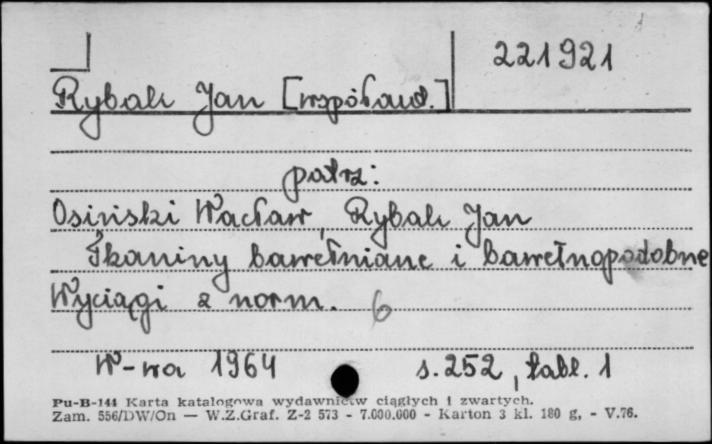 221921
Rybak Jan [współaut.]
patrz:
Osiński Wacław, Rybak Jan
Tkaniny bawełniane i bawełnopodobne
Wyciągi z norm. 6
W-wa 1964 s. 252, tabl. 1
Pu-B-144 Karta katalogowa wydawnictw ciągłych i zwartych.
Zam. 556/DW/On — W.Z.Graf. Z-2 573 - 7.000.000 - Karton 3 kl. 180 g, - V.76.